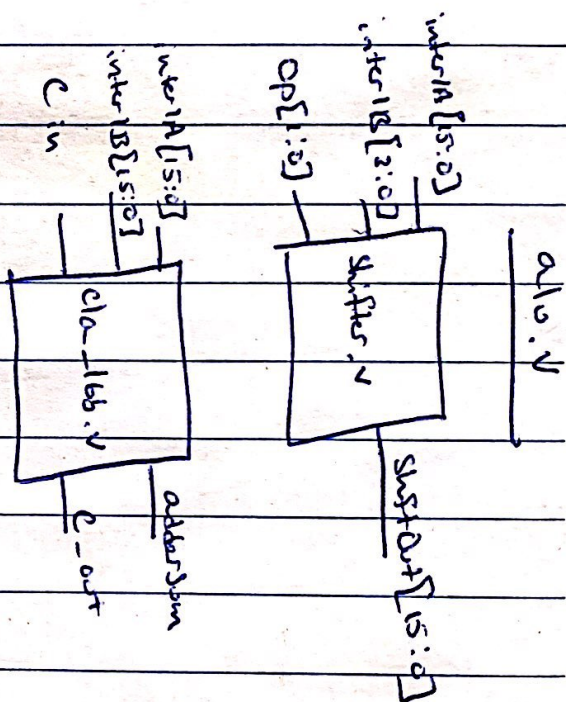 alu.v
inter1A[15:0]
inter1B[3:0]
Op[1:0]
shifter.v
ShiftOut[15:0]
inter1A[15:0]
inter1B[15:0]
Cin
cla_16b.v
adderSum
C_out